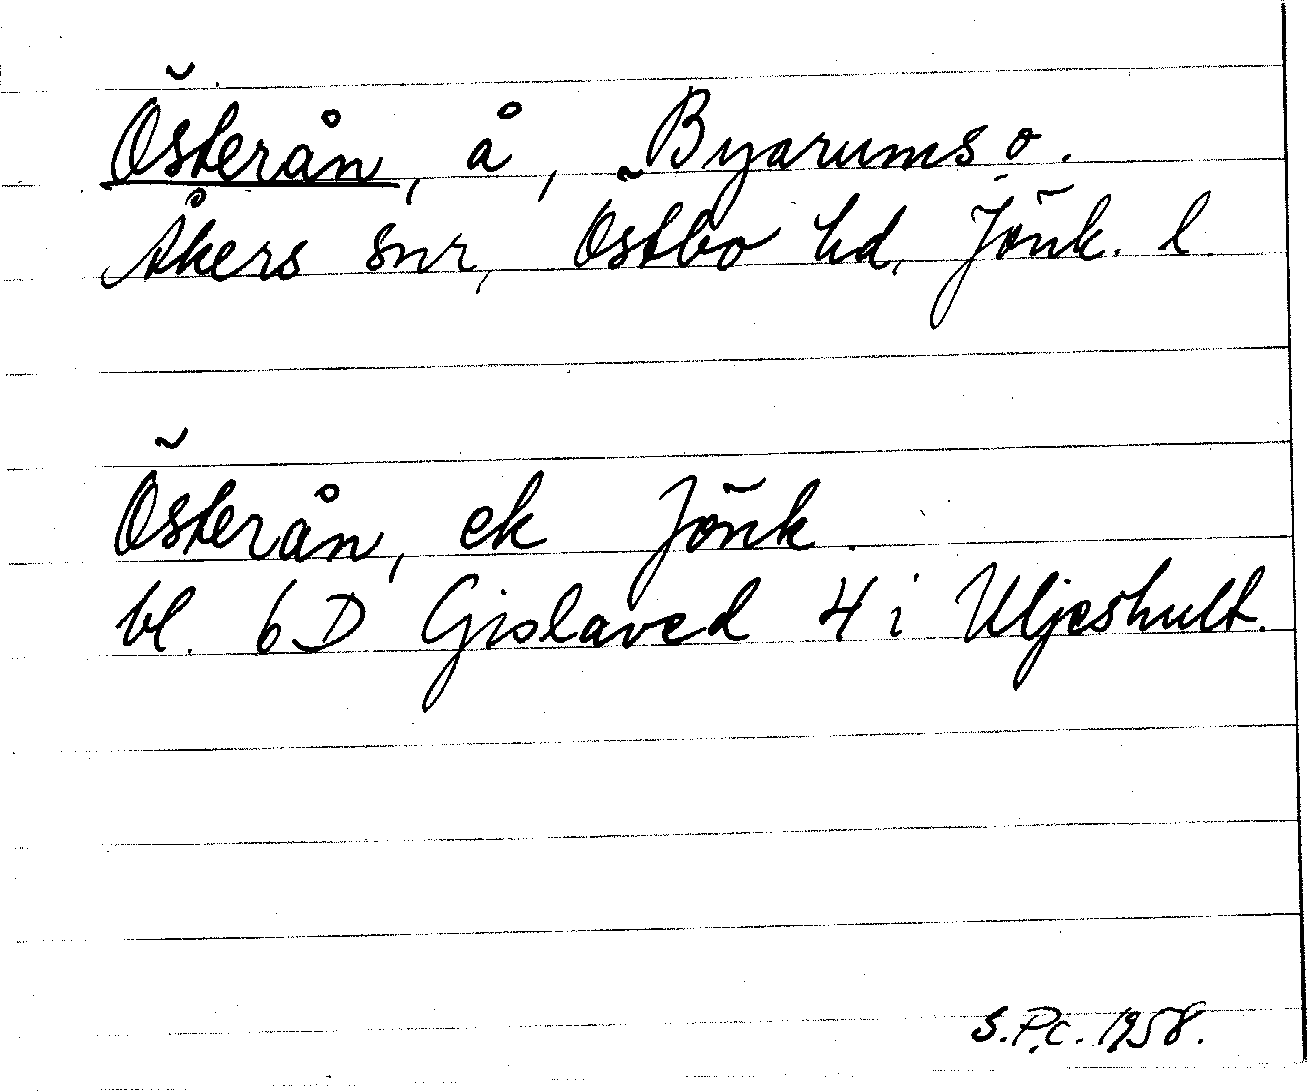 Österån, å, Byarums o.
Åkers snr, Östbo hd, Jönk. l.
Österån, ek Jönk.
bl. 6D Gislaved 4 i Uljeshult.
S.P.C. 1958.